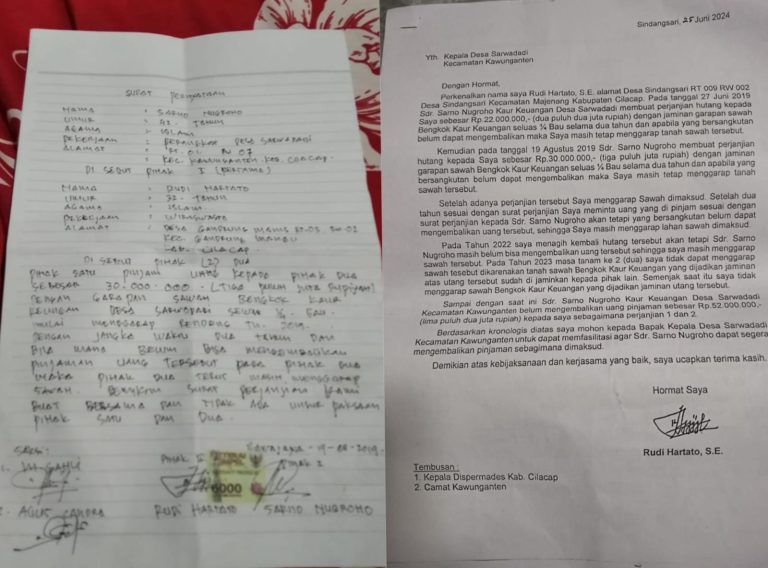 SURAT PERNYATAAN
NAMA : SARNO NUGROHO
UMUR : 42. TAHUN
AGAMA : ISLAM
PEKERJAAN : PERANGKAT DESA SARWADADI
ALAMAT : RT. 01 07
KEC. KAWUNGANTEN KAB. CILACAP.
DI SEBUT PIHAK I (PERTAMA)
NAMA : RUDI HARTATO
UMUR : 32. TAHUN
AGAMA : ISLAM
PEKERJAAN : WIRASWASTA
ALAMAT : DESA GANDRUNG MANIS RT. 03. RW. 02
KEC. GANDRUNG MANGU
KAB. CILACAP.
DI SEBUT PIHAK (2) DUA
PIHAK SATU PINJAM UANG KEPADA PIHAK DUA
SEBESAR 30.000.000.- (TIGA PULUH JUTA RUPIAH)
DENGAN GARAPAN SAWAH BENGKOK KAUR
KEUNGAN DESA SARWODADI SELUAS BAU.
MULAI MENGGARAP RENDENG TH. 2019.
DENGAN JANGKA WAKTU DUA TAHUN DAN
BILA MANA BELUM BISA MENGEMBALIKAN
PINJAMAN UANG TERSEBUT PADA PIHAK DUA
MAKA PIHAK DUA TETAP MASIH MENGGARAP
SAWAH. DEMIKIAN SURAT PERJANJIAN KAMI
BUAT BERSAMA DAN TIDAK ADA UNSUR PAKSAAN
PIHAK SATU DAN DUA.
19-08-2019.
SAKSI
PIHAK II PIHAK I
1.
6000
AGUS CANDRA RUDI HARTATO SARNO NUGROHO
Sindangsari, 25 Juni 2024
Yth. Kepala Desa Sarwadadi
Kecamatan Kawunganten
Dengan Hormat,
Perkenalkan nama saya Rudi Hartato, S.E. alamat Desa Sindangsari RT 009 RW 002
Desa Sindangsari Kecamatan Majenang Kabupaten Cilacap. Pada tanggal 27 Juni 2019
Sdr. Sarno Nugroho Kaur Keuangan Desa Sarwadadi membuat perjanjian hutang kepada
Saya sebesar Rp.22.000.000,- (dua puluh dua juta rupiah) dengan jaminan garapan sawah
Bengkok Kaur Keuangan seluas ¼ Bau selama dua tahun dan apabila yang bersangkutan
belum dapat mengembalikan maka Saya masih tetap menggarap tanah sawah tersebut.
Kemudian pada tanggal 19 Agustus 2019 Sdr. Sarno Nugroho membuat perjanjian
hutang kepada Saya sebesar Rp.30.000.000,- (tiga puluh juta rupiah) dengan jaminan
garapan sawah Bengkok Kaur Keuangan seluas ¼ Bau selama dua tahun dan apabila yang
bersangkutan belum dapat mengembalikan maka Saya masih tetap menggarap tanah
sawah tersebut.
Setelah adanya perjanjian tersebut Saya menggarap Sawah dimaksud. Setelah dua
tahun sesuai dengan surat perjanjian Saya meminta uang yang di pinjam sesuai dengan
surat perjanjian kepada Sdr. Sarno Nugroho akan tetapi yang bersangkutan belum dapat
mengembalikan uang tersebut, sehingga Saya masih menggarap lahan sawah dimaksud.
Pada Tahun 2022 saya menagih kembali hutang tersebut akan tetapi Sdr. Sarno
Nugroho masih belum bisa mengembalikan uang tersebut sehingga saya masih menggarap
sawah tersebut. Pada Tahun 2023 masa tanam ke 2 (dua) saya tidak dapat menggarap
sawah tesebut dikarenakan tanah sawah Bengkok Kaur Keuangan yang dijadikan jaminan
atas utang tersebut sudah di jaminkan kepada pihak lain. Semenjak saat itu saya tidak
menggarap sawah Bengkok Kaur Keuangan yang dijadikan jaminan utang tersebut.
Sampai dengan saat ini Sdr. Sarno Nugroho Kaur Keuangan Desa Sarwadadi
Kecamatan Kawunganten belum mengembalikan uang pinjaman sebesar Rp.52.000.000,-
(lima puluh dua juta rupiah) kepada saya sebagaimana perjanjian 1 dan 2.
Berdasarkan kronologis diatas saya mohon kepada Bapak Kepala Desa Sarwadadi
Kecamatan Kawunganten untuk dapat memfasilitasi agar Sdr. Sarno Nugroho dapat segera
mengembalikan pinjaman sebagaimana dimaksud.
Demikian atas kebijaksanaan dan kerjasama yang baik, saya ucapkan terima kasih.
Hormat Saya
Rudi Hartato, S.E.
Tembusan :
1. Kepala Dispermades Kab. Cilacap
2. Camat Kawunganten